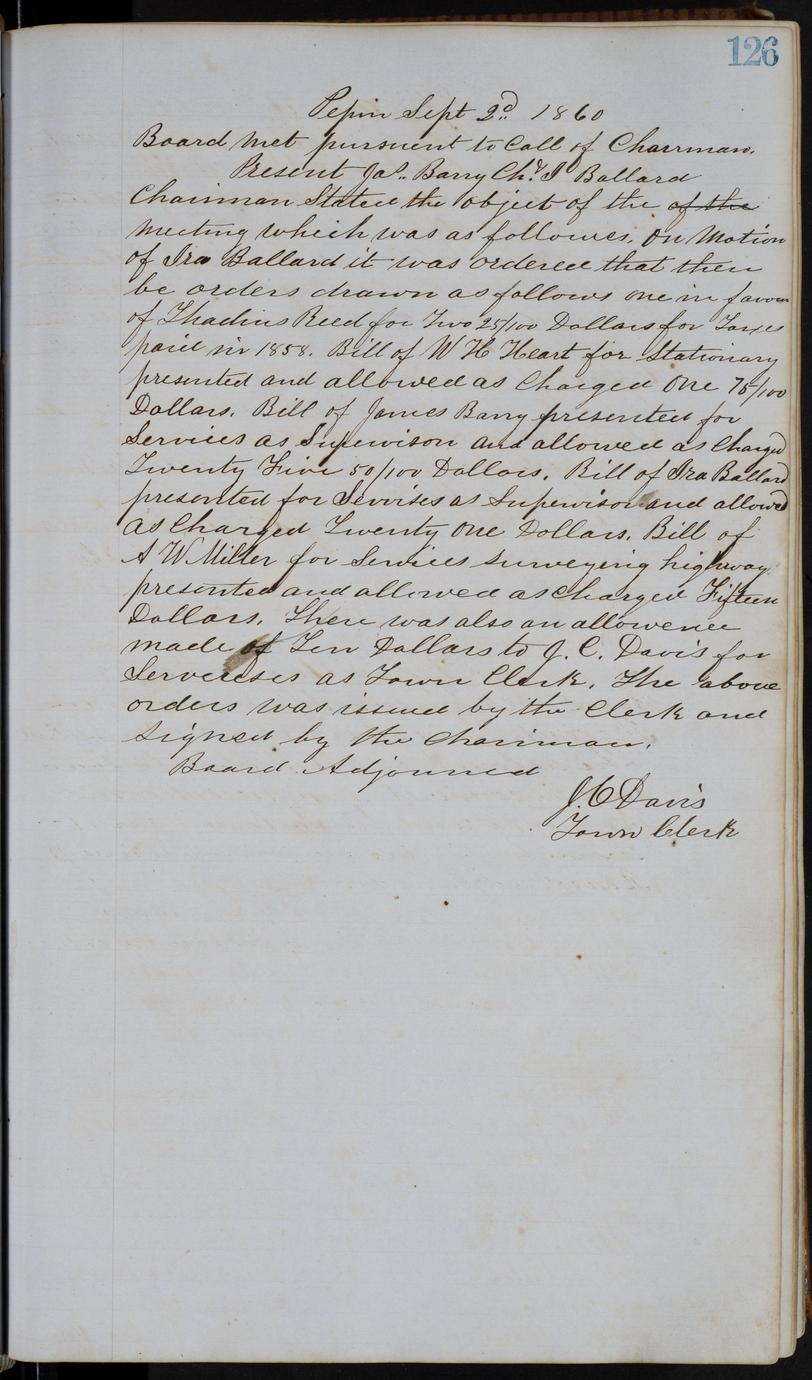 126
Pepin Sept 2d 1860
Board met pursuant to Call of Charrman.
Present Jas. Barry Ch. I Ballard
Chairman Stated the object of the of the
meeting which was as followes. On Motion
of Ira Ballard it was ordered that then
be orders drawn as follows one in favour
of Thadius Reed for Two 25/100 Dollars for Taxes
paid in 1858. Bill of W H Heart for Stationary
presented and allowed as Charged One 75/100
Dollars. Bill of James Barry presented for
Services as Supervison and allowed as Charged
Twenty Five 50/100 Dollars. Bill of Ira Ballard
presented for Servises as Supervisor and allowed
as Charged Twenty One Dollars. Bill of
A W Miller for Services surveying highway
presented and allowed as Charged Fifteen
Dollars. There was also an allowence
made of Ten Dollars to J. C. Davis for
Serveises as Town Clerk. The above
orders was issued by the Clerk and
signed by the Chairman.
Board Adjourned
J. C Davis
Town Clerk